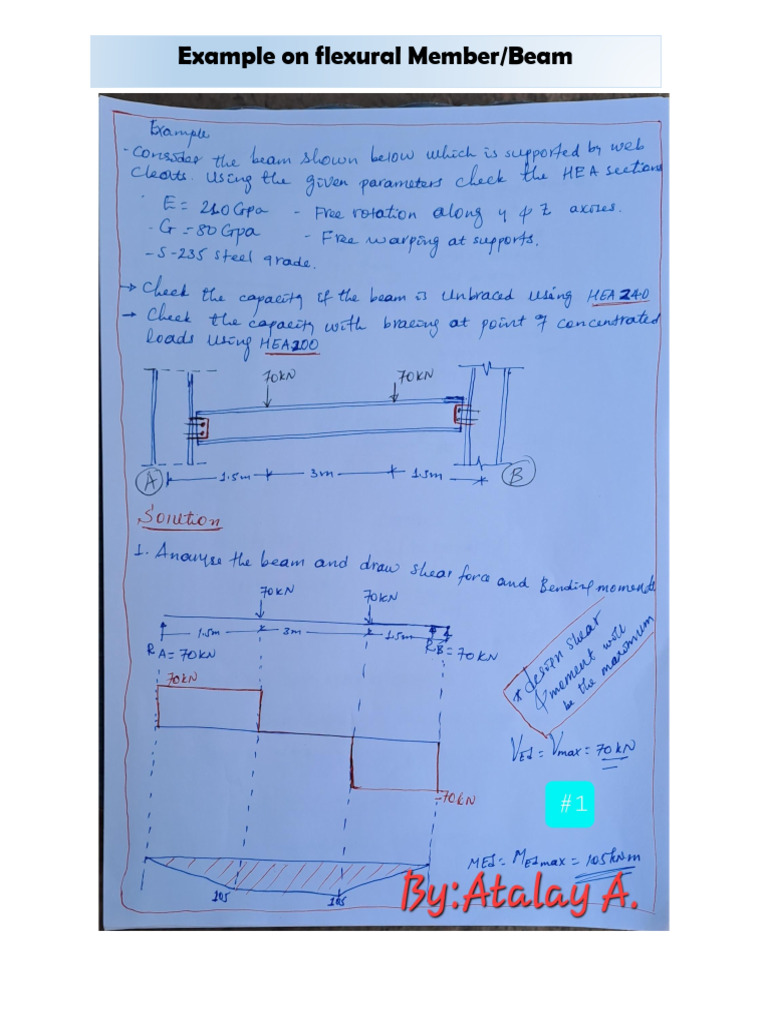 Example on flexural Member/Beam
Example
- Consider the beam shown below which is supported by web
cleats. Using the given parameters check the HEA sections
E = 210Gpa - Free rotation along y & z axises.
- G = 80Gpa - Free warping at supports.
- S-235 steel grade.
→ Check the capacity if the beam is unbraced using HEA240
→ Check the capacity with bracing at point of concentrated
loads using HEA200
70KN 70KN
A 1.5m 3m 1.5m B
Solution
1. Analyse the beam and draw shear force and Bending moments
70KN 70KN
1.5m 3m 1.5m
RA = 70KN RB = 70KN
70KN
* design shear
& moment will
be the maximum
VEd = Vmax = 70KN
-70KN
#1
MEd = MEdmax = 105kNm
105 105
By:Atalay A.